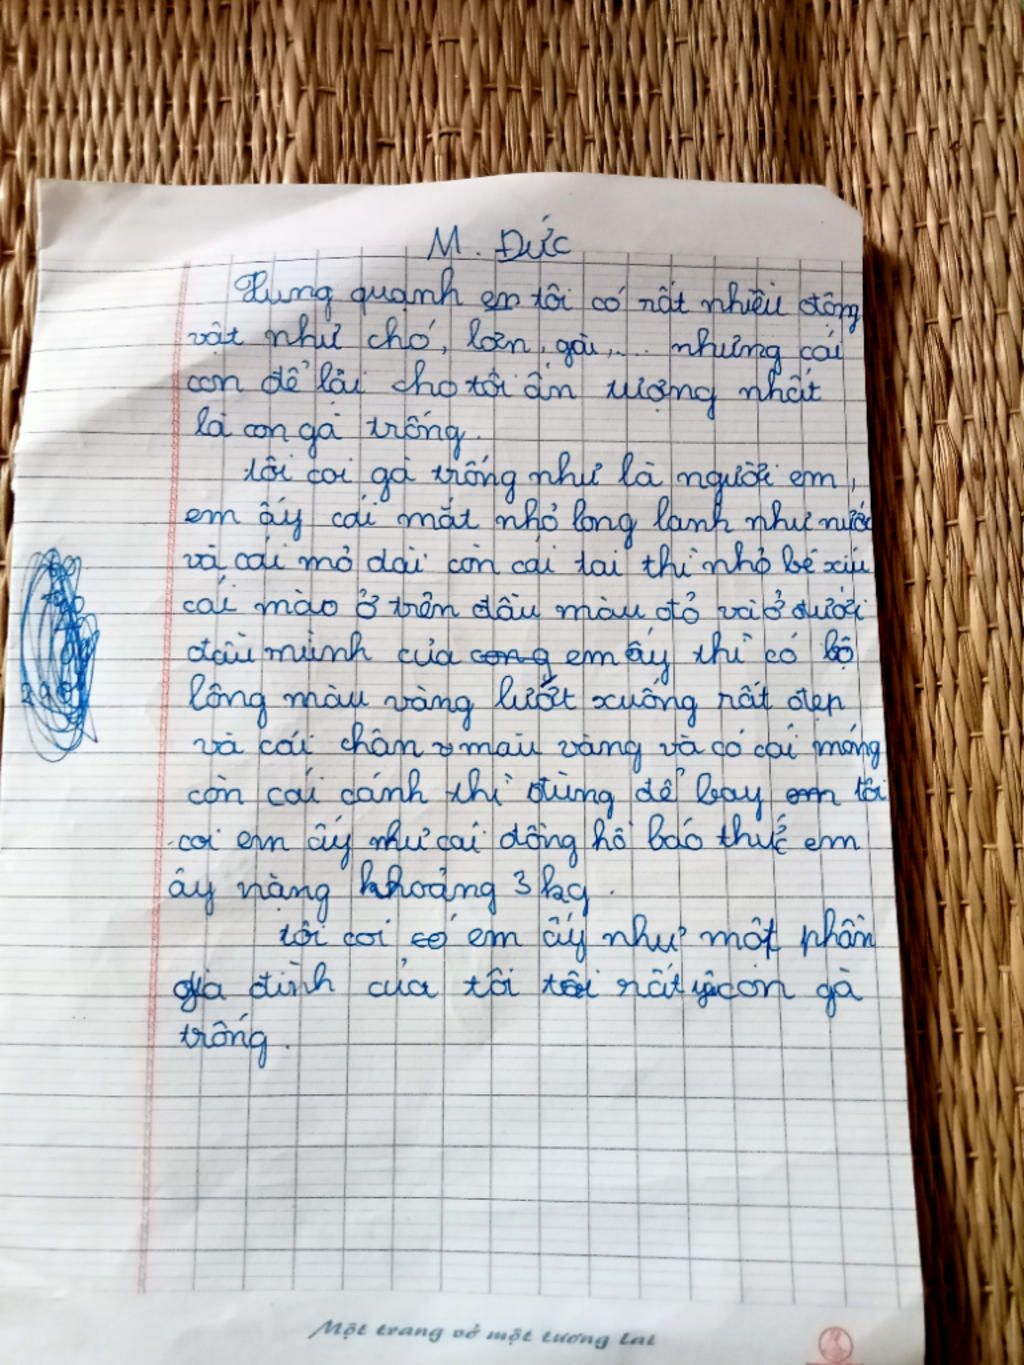 M. Đức
Xung quanh em tôi có rất nhiều động
vật như chó, lợn, gà,.... nhưng cái
con để lại cho tôi ấn tượng nhất
là con gà trống.
tôi coi gà trống như là người em,
em ấy cái mắt nhỏ long lanh như nước
và cái mỏ dài còn cái tai thì nhỏ bé xíu
cái mào ở trên đầu màu đỏ và ở dưới
đầu mình của cong em ấy thì có bộ
lông màu vàng lướt xuống rất đẹp
và cái chân màu vàng và có cái móng
còn cái cánh thì dùng để bay em tôi
coi em ấy như cái đồng hồ báo thức em
ấy nặng khoảng 3 kg.
tôi coi có em ấy như một phần
gia đình của tôi tôi rất yêu con gà
trống.
Một trang vở một tương lai